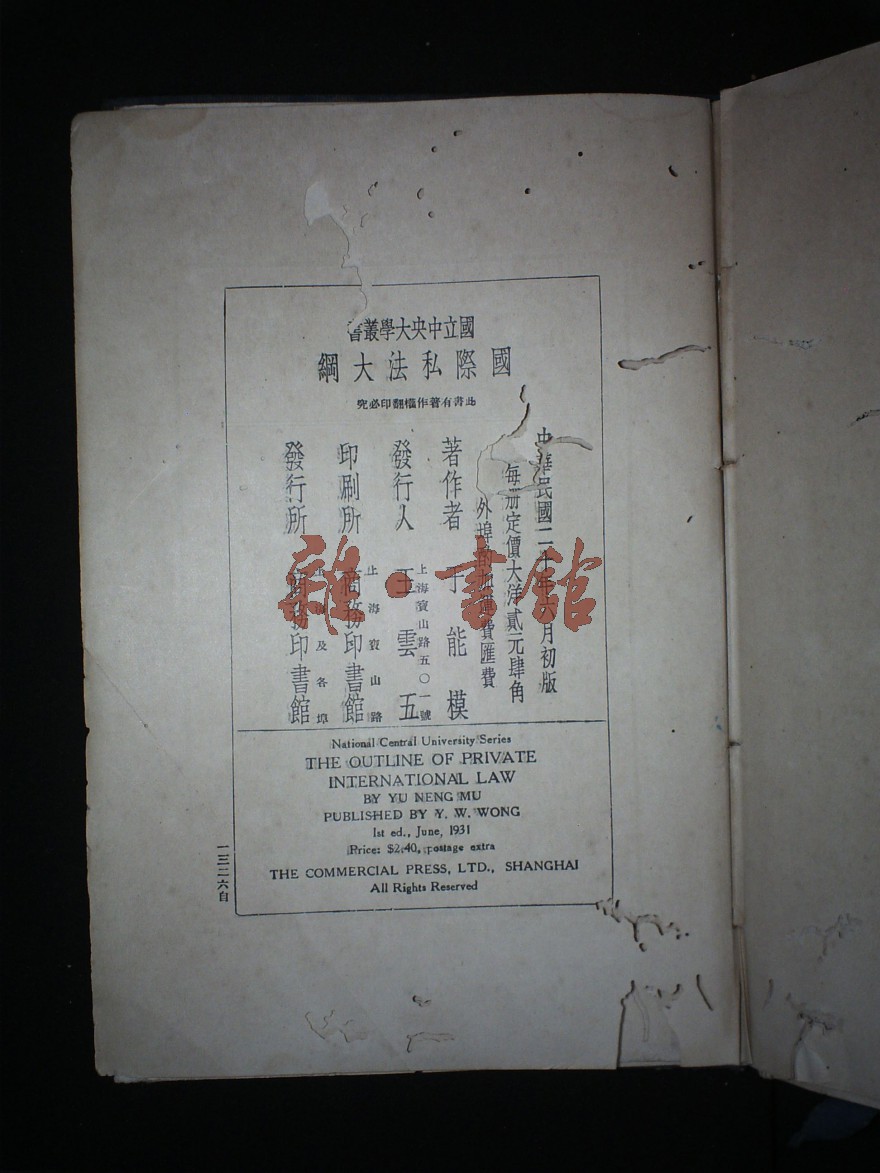 國立中央大學叢書
國際私法大綱
此書有著作權翻印必究
中華民國二十年六月初版
每册定價大洋貳元肆角
外埠酌加運費匯費
著作者 于能模
上海寶山路五〇一號
發行人 王雲五
上海寶山路
印刷所 商務印書館
上海及各埠
發行所 商務印書館
National Central University Series
THE OUTLINE OF PRIVATE
INTERNATIONAL LAW
BY YU NENG MU
PUBLISHED BY Y. W. WONG
1st ed., June, 1931
Price: $2.40, postage extra
THE COMMERCIAL PRESS, LTD., SHANGHAI
All Rights Reserved
一三二六自
雜·書館